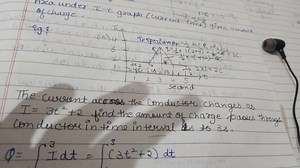 Area under I-t graph (current-time) gives amount
of charge.
Eg:
Trapezium
1 2 3 4 5
second
The current across the conductor changes as
I = 3t² + 2 find the amount of charge passes through
conductor in time interval 0s to 3s.
Q = ∫₀³ I dt = ∫₀³ (3t² + 2) dt